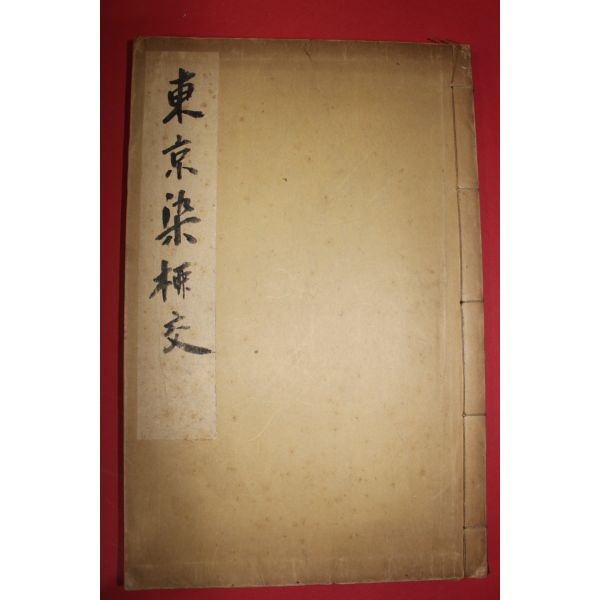 東京染柄交